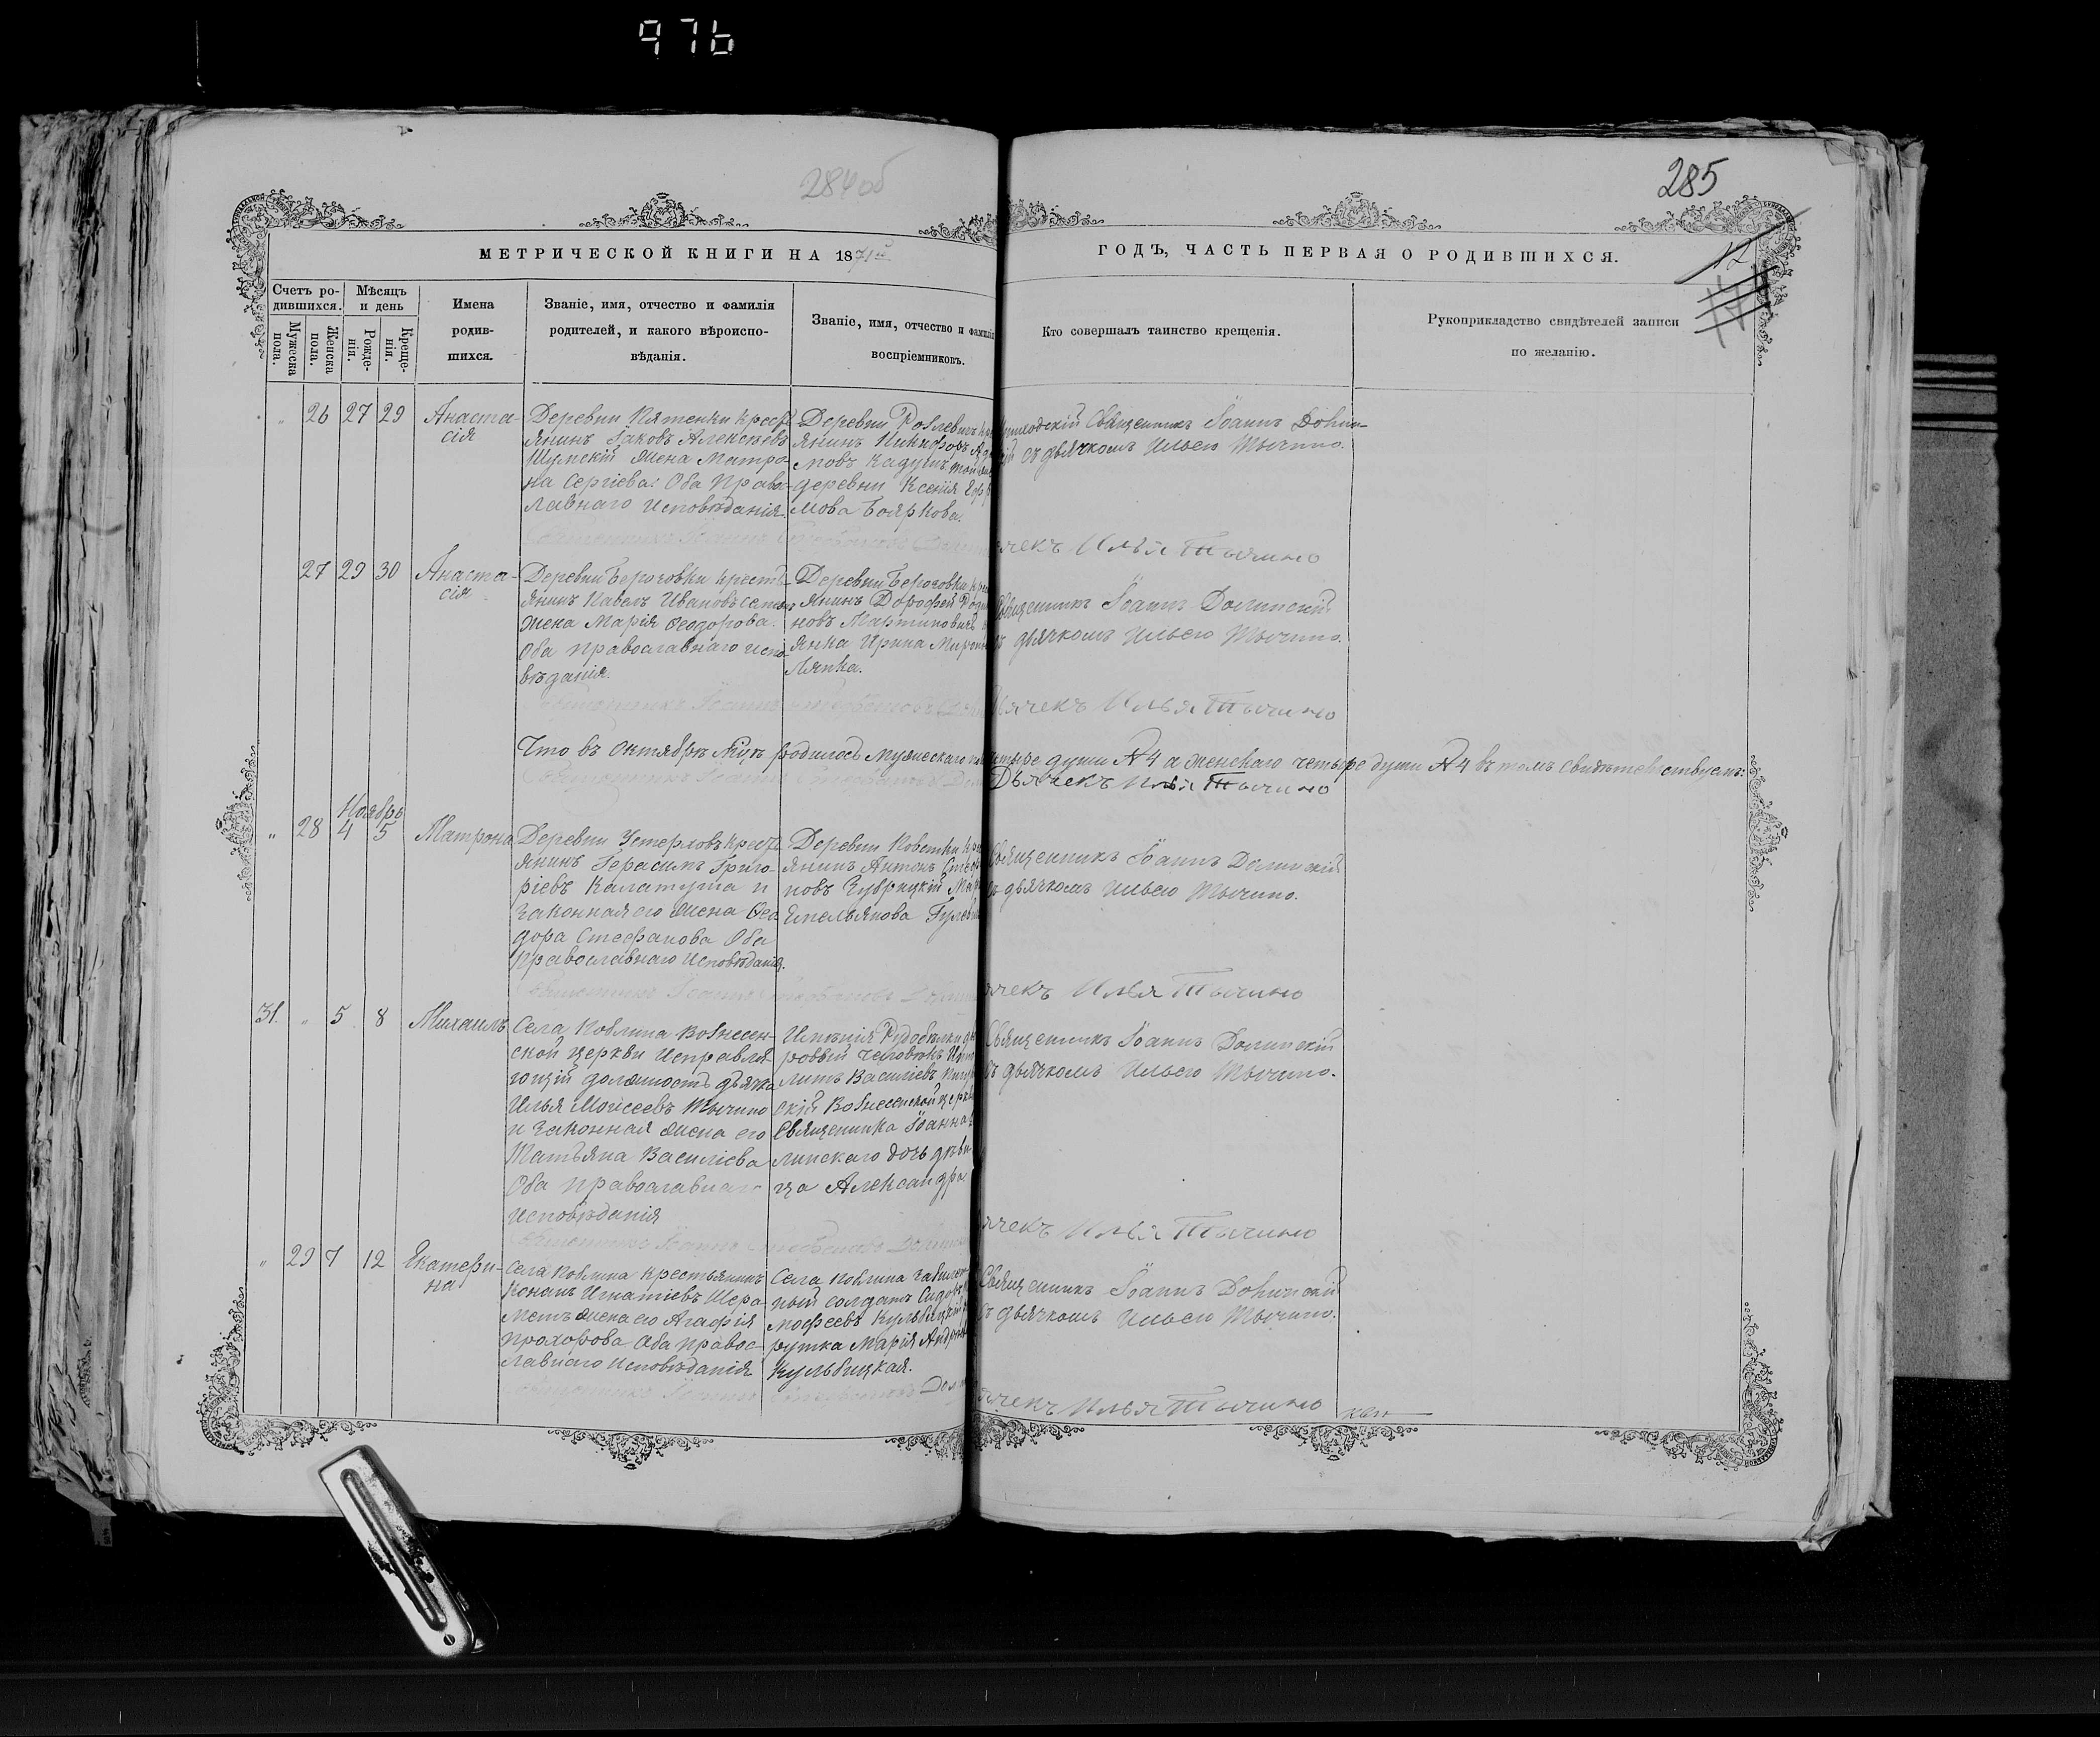 976
284об
285
МЕТРИЧЕСКОЙ КНИГИ НА 1871й
ГОДЪ, ЧАСТЬ ПЕРВАЯ О РОДИВШИХСЯ.
12
Счетъ ро-
дившихся.
Мѣсяцъ
и день
Мужеска
пола.
Женска
пола.
Рожде-
нія.
Креще-
нія.
Имена
родив-
шихся.
Званіе, имя, отчество и фамилія
родителей, и какого вѣроиспо-
вѣданія.
Званіе, имя, отчество и фамилія
воспріемниковъ.
Кто совершалъ таинство крещенія.
Рукоприкладство свидѣтелей записи
по желанію.
„ 26 27 29
Анаста-
сія
Деревни Пятенки крест-
янинъ Іаковъ Алексѣевъ
Шумскій жена Матро-
на Сергіева: Оба Правос-
лавнаго Исповѣданія.
Деревни
янинъ Никифоръ
мовъ Кадушъ той
деревни Ксенія
мова Бояркова.
Приходскій Священникъ Іоаннъ Долин-
скій съ дьячкомъ Ильею Тычино.
Священникъ Іоаннъ Стефановъ
ячекъ Илья Тычино
27 29 30
Анаста-
сія
Деревни Берозовки крест-
янинъ Павелъ Ивановъ
жена Марія Ѳеодорова.
Оба православнаго испо-
вѣданія.
Деревни Берозовки
янинъ Дорофей
новъ Мартиновичъ
янка Ирина
лянка.
Священникъ Іоаннъ Долинскій
съ дьячкомъ Ильею Тычино.
Священникъ Іоаннъ Стефановъ
Дьячекъ Илья Тычино
Что въ Октябрѣ м-цѣ родилось мужескаго четыре души № 4 а женскаго четыре души № 4 въ томъ свидѣтельствуемъ:
Священникъ Іоаннъ Стефановъ
Дьячекъ Илья Тычино
Ноябрь
„ 28 4 5
Матрона
Деревни Устерховъ крест-
янинъ Герасимъ Григо-
ріевъ Калатуша и
законная его жена Ѳео-
дора Стефанова Оба
православнаго Исповѣданія.
Деревни Ковешки
янинъ Антонъ
новъ Зубрицкій
Емельянова
Священникъ Іоаннъ Долинскій
съ дьячкомъ Ильею Тычино.
Священникъ Іоаннъ Стефановъ
ячекъ Илья Тычино
31. „ 5 8
Михаилъ
Села Коблина Вознесен-
ской церкви исправля-
ющій должность дьячка
Илья Моисеевъ Тычино
и законная жена его
Татьяна Василіева
Оба православнаго
исповѣданія
Имѣнія Рудобѣлки
ровый человѣкъ
литъ Василіевъ
скій Вознесенской церкви
Священника Іоанна
линскаго дочь дѣви-
ца Александра
Священникъ Іоаннъ Долинскій
съ дьячкомъ Ильею Тычино.
Священникъ Іоаннъ Стефановъ
ячекъ Илья Тычино
„ 29 7 12
Екатери-
на
Села Коблина крестьянинъ
Кононъ Игнатіевъ Шера-
метъ жена его Агафія
Прохорова Оба правос-
лавнаго Исповѣданія
Села Коблина
ный солдатъ Сидоръ
мофеевъ Кульбицкій
рутка Марія
Кульбицкая.
Священникъ Іоаннъ Долинскій
съ дьячкомъ Ильею Тычино.
Священникъ Іоаннъ Стефановъ
ячекъ Илья Тычино